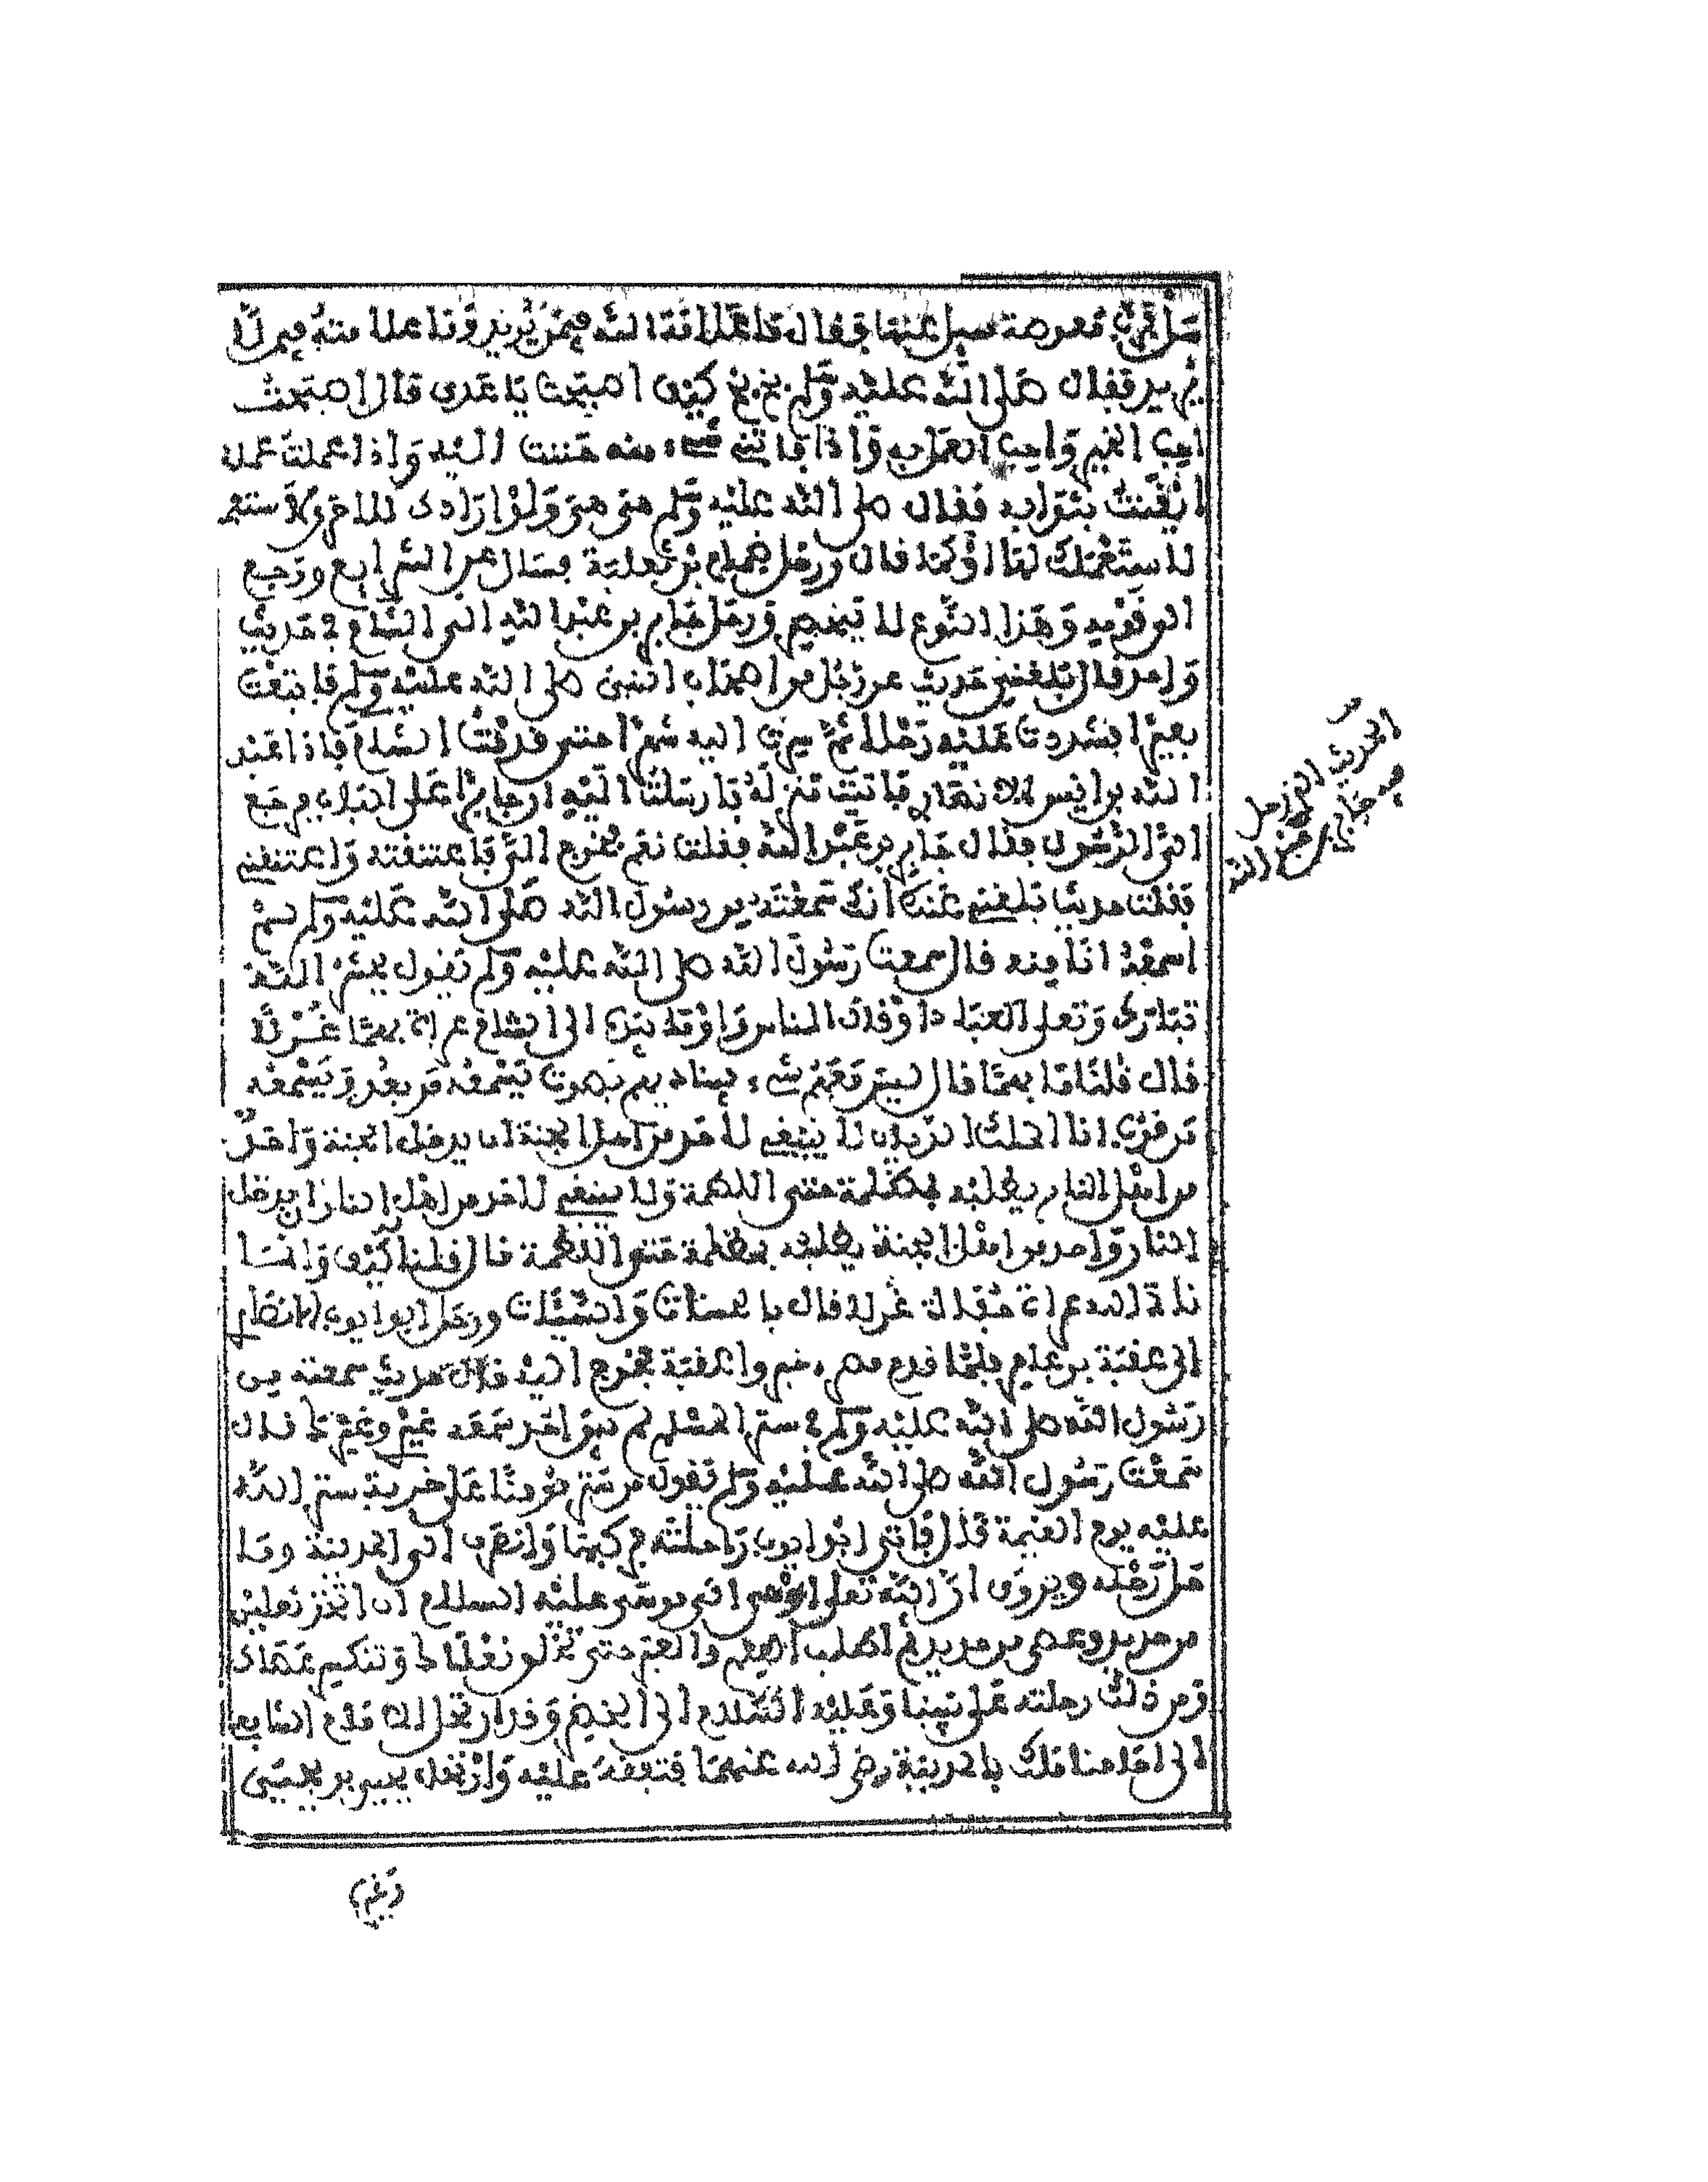 فقال ما علامة الله فيمن يريد وما علامته فيمن لا
يريد فقال صلى الله عليه وسلم بخ بخ كيف أصبحت يا عدي قال أصبحت
أحب الخير وأحب العمل به وإذا فاتني شيء منه حننت اليه وإذا عملت عملا
أيقنت بثوابه فقال صلى الله عليه وسلم هي هي ولو أرادك
قال ورحل ضمام بن ثعلبة فسأل عن الشرايع ورجع
الى قومه وهذا النوع لا ينحصر ورحل جابر بن عبد الله الى الشام في حديث
واحد قال بلغني حديث عن رجل من اصحاب النبي صلى الله عليه وسلم فابتعت
بعيرا فشددت عليه رحلا ثم سرت اليه شهرا حتى قدمت الشام فاذا عبد
الله بن انيس الانصاري فاتيت منزله فارسلت اليه ان جابرا على الباب فرجع
الي الرسول فقال جابر بن عبد الله فقلت نعم فخرج الي فاعتنقته واعتنقني
فقلت حديثا بلغني عنك انك سمعته من رسول الله صلى الله عليه وسلم لم
اسمعه انا منه قال سمعت رسول الله صلى الله عليه وسلم يقول يحشر الله
تبارك وتعلى العباد او قال الناس واومأ بيده الى الشام عراة بهما غرلا
قال قلنا ما بهما قال ليس معهم شيء فيناديهم بصوت يسمعه من بعد ويسمعه
من قرب انا الملك الديان لا ينبغي لاحد من اهل الجنة ان يدخل الجنة وأحد
من اهل النار يطلبه بمظلمة حتى اللطمة ولا ينبغي لاحد من اهل النار ان يدخل
النار وأحد من اهل الجنة يطلبه بمظلمة حتى اللطمة قال قلنا كيف وإنما
ناتي الله عراة غرلا قال بالحسنات والسيئات ورحل ابو ايوب الانصاري
الى عقبة بن عامر فلما قدم مصر اخبروا عقبة فخرج اليه قال حديث سمعته من
رسول الله صلى الله عليه وسلم في ستر المسلم لم يبق احد سمعه غيري وغيرك قال
سمعت رسول الله صلى الله عليه وسلم يقول من ستر مومنا على خزية ستر الله
عليه يوم القيمة قال فاتى ابو ايوب راحلته فركبها وانصرف الى المدينة وما
حل رحله ويروى ان الله تعلى اوحى الى موسى عليه السلام ان اتخذ نعلين
من حديد وعصى من حديد ثم اطلب العلم والعبر حتى تخلق نعلاك وتنكسر عصاك
ومن ذلك رحلته على نبينا وعليه السلام الى الخضر وقد ارتحل الامام الشافعي
الى امامنا مالك بالمدينة رضي الله عنهما فتفقه عليه وارتحل يحيى بن يحيى
الحديث الذي رحل
فيه جابر بن عبد الله